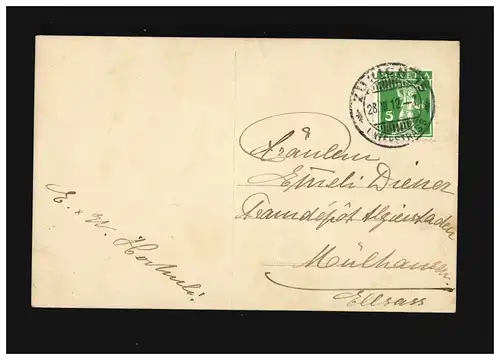 HELVETIA
5
ZÜRICH
28. III. 12
Fräulein
Emeli Diener
Tramdépôt
Mülhausen
Elsass
E. & W.